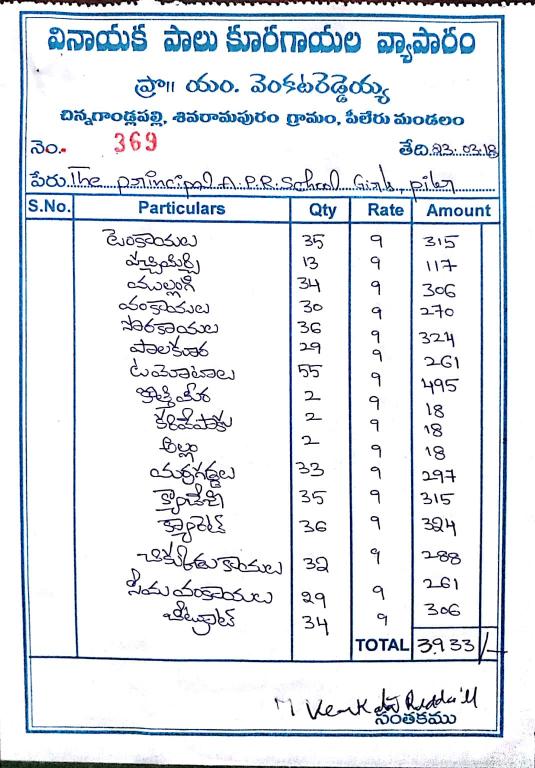 వినాయక పాలు కూరగాయల వ్యాపారం
ప్రొ॥ యం. వెంకటరెడ్డెయ్య
చిన్నగాండ్లపల్లి, శివరామపురం గ్రామం, పీలేరు మండలం
నెం. 369 తేది.23.03.18
పేరు.The principal A.P.R.School Girls, piler
S.No. Particulars Qty Rate Amount
టెంకాయలు 35 9 315
పచ్చిమిర్చి 13 9 117
ముల్లంగి 34 9 306
వంకాయలు 30 9 270
సొరకాయలు 36 9 324
పాలకూర 29 9 261
టమోటాలు 55 9 495
కొత్తిమీర 2 9 18
కరివేపాకు 2 9 18
అల్లం 2 9 18
యర్రగడ్డలు 33 9 297
క్యాబేజి 35 9 315
క్యారెట్ 36 9 324
చిక్కుడు కాయలు 32 9 288
సీమ వంకాయలు 29 9 261
బీట్రూట్ 34 9 306
TOTAL 3933/-
సంతకము